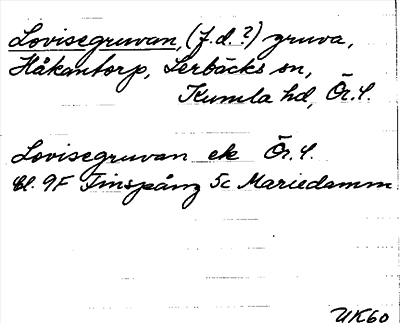 Lovisegruvan, (f.d.?) gruva,
Håkantorp, Lerbäcks sn,
Kumla hd, Ör.l.
Lovisegruvan ek Ör.l.
bl. 9F Finspång 5c Mariedamm
UK60